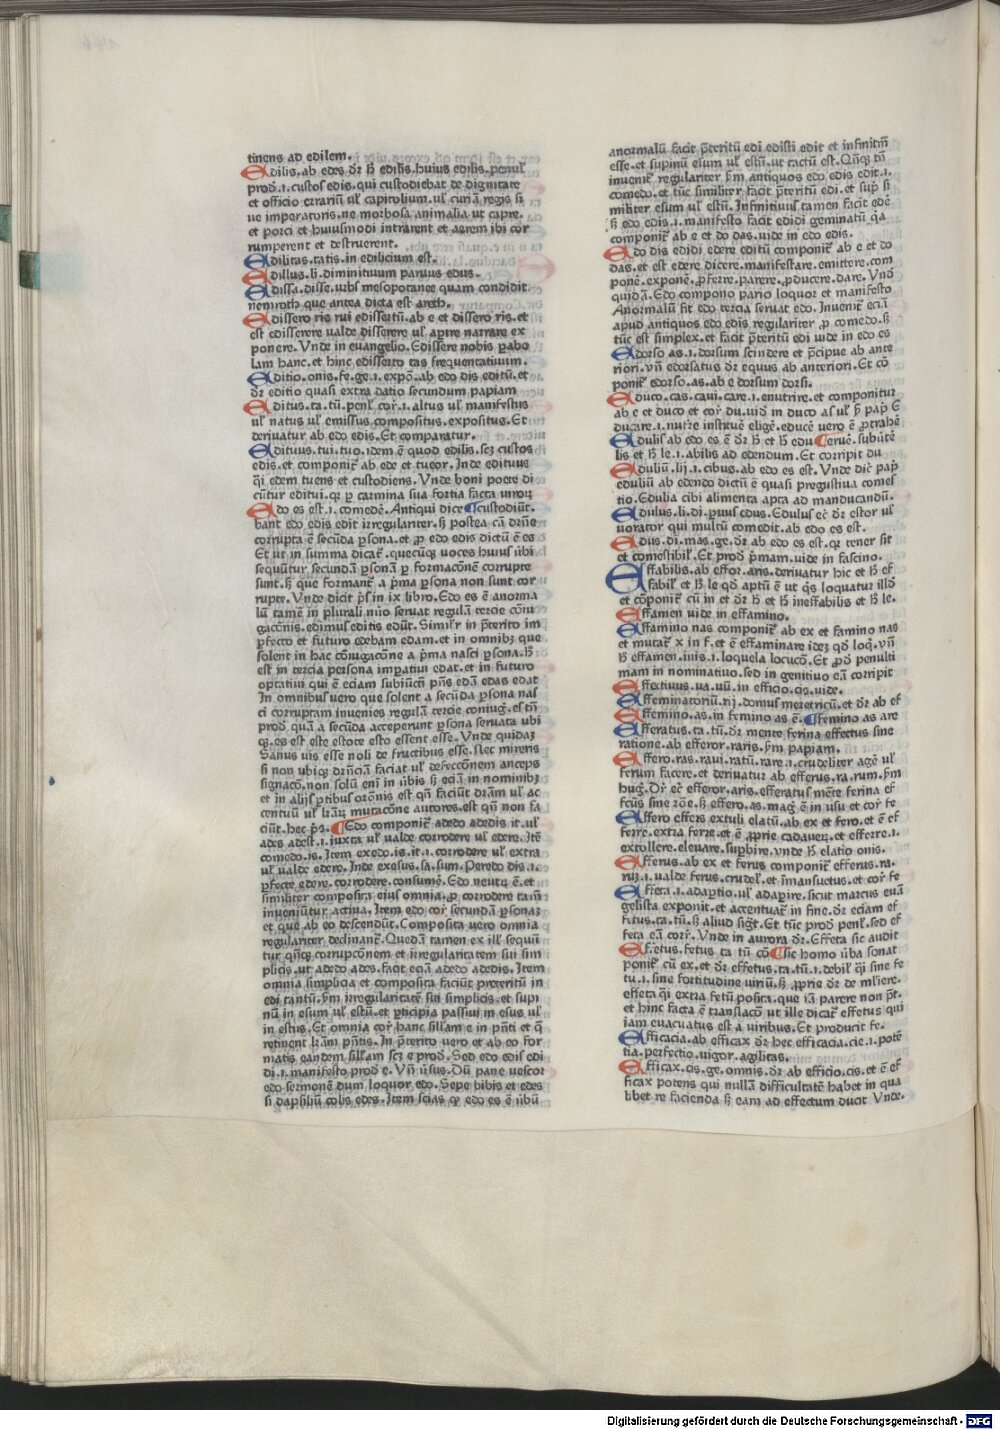 tinens ad edilem.
Edilis. ab edes dr̄ hͦ edilis. huius edilis. penul̄
prod̄. i. custos edis. qui custodiebat de dignitate
et officio erariū ul̓ capitolium. ul̓ curiā regis si
ue imperatoris. ne morbosa animalia ut capre.
et porci et huiusmodi intrarent et aerem ibi cor
rumperent et destruerent.
Edilitas. tatis. in edilicium est.
Edillus. li. diminitiuum paruus edus.
Edissa. disse. urbs mesopotanee quam condidit
nemroth que antea dicta est areth.
Edissero ris rui edissertū. ab e et dissero ris. et
est edisserere ualde disserere ul̓ apire narrare ex
ponere. Vnde in euangelio. Edissere nobis ꝑabo
lam hanc. et hinc edisserto tas frequentatiuum.
Editio. onis. fe. ge. i. expō. ab edo dis editū. et
dr̄ editio quasi extra datio secundum papiam
Editus. ta. tū. penl̓. cor̄. i. altus ul̓ manifestus
ul̓ natus ul̓ emissus compositus. expositus. Et
deriuatur ab edo edis. Et comparatur.
Edituus. tui. tuo. idem ē quod edilis. scz custos
edis. et componit̄ ab ede et tueor. Inde edituus
q̄i edem tuens et custodiens. Vnde boni poete di
cūtur editui. qꝛ ꝑ carmina sua fortia facta uiroꝝ
Edo es est. i. comedē. Antiqui dice ¶custodiūt.
bant edo edis edit irregulariter. sꝫ postea cā dr̄ne
corrupta ē secūda ꝑsona. et ꝓ edo edis dictū ē es
Et ut in summa dicat̄. quecūqꝫ uoces huius ūbi
sequūtur secundā ꝑsonā ꝑ formacōnē corrupte
sunt. sꝫ que formant̄ a p̄ma ꝑsona non sunt cor
rupte. Vnde dicit p̄s in ix libro. Edo es ē anorma
lū tamē in plurali nūo seruat regulā tercie cōiu
gacōnis. edimus editis edūt. Simil̓r in p̄terito im
ꝑfecto et futuro edebam edam. et in omnibꝫ que
solent in hac cōiugacōne a p̄ma nasci ꝑsona. hͦ
est in tercia persona impatiui edat. et in futuro
optatiui qui ē eciam subiūcti p̄ns edā edas edat
In omnibus uero que solent a secūda ꝑsona nas
ci corruptam inuenies regulā tercie coniug̓. es tn̄
prod̄ quā a secūda acceperunt ꝑsona seruata ubi
qꝫ. es est este estote esto essent esse. Vnde quidaꝫ
Sanus uis esse noli de fructibus esse. Nec mireris
si non ubiqꝫ dr̄nciā faciat ul̓ defeccōnem anceps
signacō. non solū eni̅ in ūbis sꝫ eciā in nominibꝫ
et in alijs ꝑtibus orōnis est qn̄ faciūt dr̄am ul̓ ac
centuū ul̓ lr̄aꝝ mutacōne autores. est qn̄ non fa
ciūt. hec p̄s. ¶Edo componit̄ adedo adedis it. ul̓
ades adest. i. iuxta ul̓ ualde corrodere ul̓ edere. Itē
comedo. is. Item exedo. is. it. i. corrodere ul̓ extra
ul̓ ualde edere. Inde exesus. sa. sum. Peredo dis. i.
ꝑfecte edere. corrodere. consumē. Edo neutꝝ ē. et
similiter composita eius omnia. ꝓ corrodere tam̄
inueniūtur actiua. Item edo cor̄ secundā ꝑsonaꝫ
et que ab eo descendūt. Composita uero omnia
regulariter declinant̄. Quedā tamen ex ill̓ sequū
tur qn̄qꝫ corrupcōnem et irregularitatem sui sim
plicis. ut adedo ades. facit eciā adedo adedis. Item
omnia simplicia et composita faciūt preteritū in
edi tantū. ꝑm irregularitatē sui simplicis. et supi
nū in esum ul̓ estū. et ꝑticipia passiui in esus ul̓
in estus. Et omnia cor̄ hanc sill̓am e in p̄nti et q̄
retinent lr̄am p̄ntis. In p̄terito uero et ab eo for
matis eandem sill̓am scꝫ e prod̄. Sed edo edis edi
di. i. manifesto prod̄ e. Vn̄ ūsus. Dū pane uescor
edo sermonē dum loquor edo. Sepe bibis et edes
si dapsiliū colis edes. Item scias qꝫ edo es ē ūbū
anormalū facit p̄teritū edi edisti edit et infinitm̄
esse. et supinū esum ul̓ estū. ut tactū est. Qn̄qꝫ tn̄
inuenit̄ regulariter ꝑm antiquos edo edis edit. i.
comedo. et tūc similiter facit p̄teritū edi. et sup̄ si
militer esum ul̓ estū. Infinitiuus tamen facit edē
sꝫ edo edis. i. manifesto facit edidi geminatū q̄a
componit̄ ab e et do das. uide in edo edis.
Edo dis edidi edere editū componit̄ ab e et do
das. et est edere dicere. manifestare. emittere. com
ponē. exponē. ꝓferre. parere. ꝓducere. dare. Vnd̄
quidā. Edo compono pario loquor et manifesto
Anormalū fit edo tercia seruat edo. Inuenit̄ eciā
apud antiquos edo edis regulariter ꝓ comedo. sꝫ
tūc est simplex. et facit p̄teritū edi uide in edo es
Edorso as. i. dorsum scindere et p̄cipue ab ante
riori. vn̄ edorsatus dr̄ equus ab anteriori. Et cō
ponit̄ edorso. as. ab e dorsum dorsi.
Educo. cas. caui. care. i. enutrire. et componitur
ab e et duco et cor̄ du. uid̓ in duco as ul̓ ꝑ pap̄ ē
ducare. i. nutr̄e instituē eligē. educē uero ē ꝓtrahē
Edulis ab edo es ē dr̄ hͦ et hͨ edu ¶eruē. subūtē
lis et hͦ le. i. abilis ad edendum. Et corripit du
Eduliū. lij. i. cibus. ab edo es est. Vnde dic̄ pap̄
eduliū ab edendo dictū ē quasi pregustiua comes
tio. Edulia cibi alimenta apta ad manducandū.
Edulus. li. di. ꝑuus edus. Edulus ec̄ dr̄ estor ul̓
uorator qui multū comedit. ab edo es est.
Edus. di. mas. ge. dr̄ ab edo es est. qꝛ tener sit
et comestibil̓. Et prod̄ p̄mam. uide in fascino.
Effabilis. ab effor. aris. deriuatur hic et hͨ ef
fabil̓ et hͦ le qd̓ aptū ē ut q̄s loquatur illd̓
et cōponit̄ cū in et dr̄ hͦ et hͨ ineffabilis et hͦ le.
Effamen uide in effamino.
Effamino nas componit̄ ab ex et famino nas
et mutat̄ x in f. et ē effaminare ideꝫ qd̓ loq̄. vn̄
hͦ effamen. inis. i. loquela locucō. Et ꝓd̄ penulti
mam in nominatiuo. sed in genitiuo eā corripit
Effectiuus. ua. uū. in efficio. cis. uide.
Effeminatoriū. rij. domus meretricū. et dr̄ ab ef
Effemino. as. in femino as ē. ¶femino as are
Efferatus. ta. tū. dr̄ mente ferina effectus sine
ratione. ab efferor. raris. ꝑm papiam.
Effero. ras. raui. ratū. rare. n. crudeliter agē ul̓
ferum facere. et deriuatur ab efferus. ra. rum. ꝑm
hug̓. Dr̄ ec̄ efferor. aris. efferatus mēte ferina ef
fc̄us sine rōe. sꝫ effero. as. mag̓ ē in usu et cor̄ fe
Effero effers extuli elatū. ab ex et fero. et ē ef
ferre. extra ferre. et ē ꝓprie cadaueꝝ. et efferre. i.
extollere. eleuare. suꝑbire. vnde hͨ elatio onis.
Efferus. ab ex et ferus componit̄ efferus. ra.
rum. i. ualde ferus. crudel̓. et īmansuetus. et cor̄ fe
Effeta. i. adaptio. ul̓ adaperire. sicut marcus euā
gelista exponit. et accentuat̄ in fine. dr̄ eciam ef
fetus. ta. tū. sꝫ aliud sig̓t. Et tūc prod̄ penl̓. sed ef
feta eā cor̄. Vnde in aurora dr̄. Effeta sic audit
Effetus. fetus ta tū cō ¶sic homo ūba sonat
ponit̄ cū ex. et dr̄ effetus. ta. tū. i. debil̓ q̄i sine fe
tu. i. sine fortitudine uiriū. sꝫ ꝓprie dr̄ de ml̓iere.
effeta q̄i extra fetū posita. que iā parere non pt̄.
et hinc facta ē translacō ut ille dicat̄ effetus qui
iam euacuatus est a uiribus. Et producit fe.
Efficacia. ab efficax dr̄ hec efficacia. cie. i. potē
tia. perfectio. uigor. agilitas.
Efficax. cis. ge. omnis. dr̄ ab efficio. cis. et ē ef
ficax potens qui nullā difficultatē habet in qua
libet re facienda sꝫ eam ad effectum ducit Vnde.
Digitalisierung gefördert durch die Deutsche Forschungsgemeinschaft - DFG